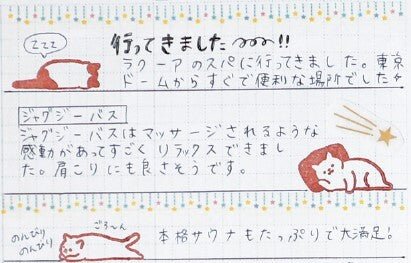 zzz
行ってきました〰〰!!
ラクーアのスパに行ってきました。東京
ドームからすぐで便利な場所でした♪
ジャグジーバス
ジャグジーバスはマッサージされるような
感動があってすごくリラックスできまし
た。肩こりにも良さそうです。
のんびり
のんびり
ごろ〜ん
本格サウナもたっぷりで大満足!